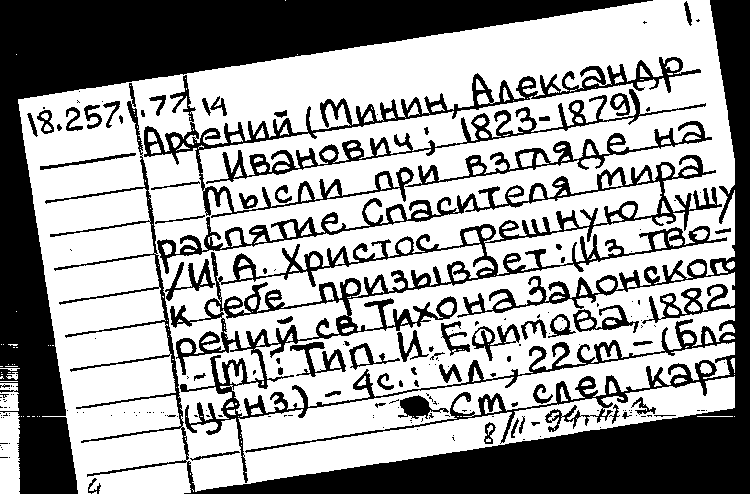 1.
18.257.1.77-14
Арсений (Минин, Александр
Иванович; 1823-1879).
Мысли при взгляде на
распятие Спасителя мира
/И.А. Христос грешную душу
к себе призывает: (Из тво-
рений св. Тихона Задонского
.-[М.]: Тип. И. Ефимова, 1882
(ценз.).- 4с.: ил.; 22см.- (Бла
См. след. карт
8/II-94.
4